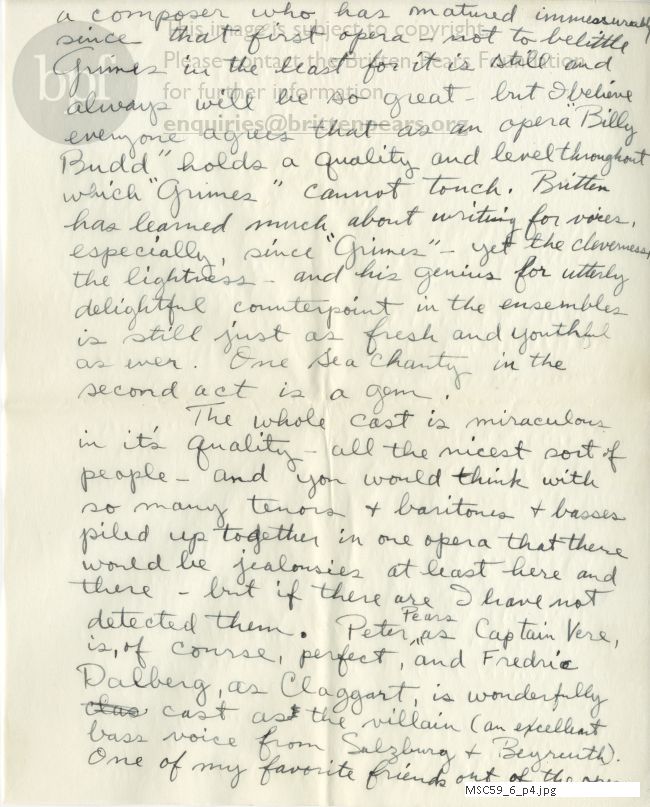 a composer who has matured immesurably
since that first opera - not to belittle
Grimes in the least for it is still and
always will be so great - but I believe
everyone agrees that as an opera "Billy
Budd" holds a quality and level throughout
which "Grimes" cannot touch. Britten
has learned much about writing for voices,
especially, since "Grimes" - yet the cleverness,
the lightness - and his genius for utterly
delightful counterpoint in the ensembles
is still just as fresh and youthful
as ever. One sea chanty in the
second act is a gem.
The whole cast is miraculous
in it's quality - all the nicest sort of
people - and you would think with
so many tenors + baritones + basses
piled up together in one opera that there
would be jealousies at least here and
there - but if there are I have not
detected them. Peter Pears, as Captain Vere,
is, of course, perfect, and Fredric
Dalberg, as Claggart, is wonderfully
cast as the villain (an excellent
bass voice from Salzburg + Beyreuth).
One of my favorite friends out of the
bpf
This image is subject to copyright.
Please contact the Britten-Pears Foundation
for further information
enquiries@brittenpears.org
MSC59_6_p4.jpg